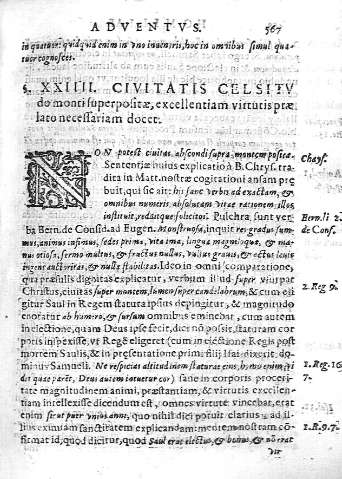 ADVENTVS. 567
in quatuor: quidquid enim in vno inueneris, hoc in omnibus simul qua-
tuor cognosces.
§. XXIIII. CIVITATIS CELSITV
do monti superpositæ, excellentiam virtutis præ
lato necessariam docet.
NON potest ciuitas abscondi supra montem posita.
Sententiæ huius explicatio à B. Chrys. tra Chrys.
dita in Matt. nostræ cogitationi ansam præ
buit, qui sic ait: his sanè verbis ad exactam, &
omnibus numeris absolutam vitæ rationem illos
instituit, redditque solicitos. Pulchra, sunt ver Bern. li 2.
ba Bern. de Consid. ad Eugen. Monstruosa, inquit res gradus sum de Cons.
mus, animus infimus, sedes prima, vita ima, lingua magniloqua, & ma-
nus otiosa, sermo multus, & fructus nullus, vultus grauis, & actus leuis
ingens auctoritas, & nulla stabilitas. Ideo in omni comparatione,
qua præsulis dignitas explicatur, verbum illud super viurpat
Christus, ciuitas super montem, lumen super candelabrum, & cum eli 2. Reg 9.
gitur Saul in Regem statura ipsius depingitur, & magnitudo
enotatur ab humero, & sursum omnibus eminebat, cum autem
in electione, quam Deus ipse fecit, dici nō possit, staturam cor
poris inspexisse, vt Regē eligeret (cum in electione Regis post
mortem Saulis, & in presentatione primi filij Isai dixerit, do-
minus Samueli. Ne respicias altitudinem staturæ eius, homo enim vi 1. Reg. 16
dit quæ parēt, Deus autem intuetur cor) sanè in corporis proceri- 7.
tate magnitudinem animi, præstantiam, & virtutis excellen-
tiam intellexisse dicendum est, omnes virtute vincebat, erat
enim sicut puer vnius anni, quo nihil dici potuit clarius ad il-
lius eximiam sanctitatem explicandam: mentem nostram cō- 1. R. 9. 7.
firmat id, quod dicitur, quod Saul erat electus, & bonus, & nō erat
vir